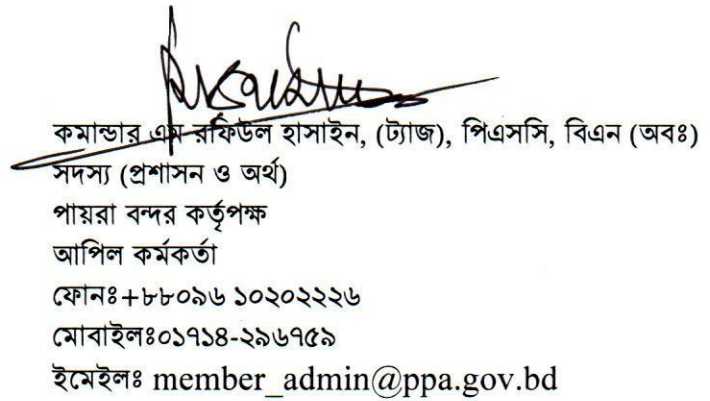 কমান্ডার এম রফিউল হাসাইন, (ট্যাজ), পিএসসি, বিএন (অবঃ)
সদস্য (প্রশাসন ও অর্থ)
পায়রা বন্দর কর্তৃপক্ষ
আপিল কর্মকর্তা
ফোনঃ+৮৮০৯৬ ১০২০২২২৬
মোবাইলঃ০১৭১৪-২৯৬৭৫৯
ইমেইলঃ member_admin@ppa.gov.bd